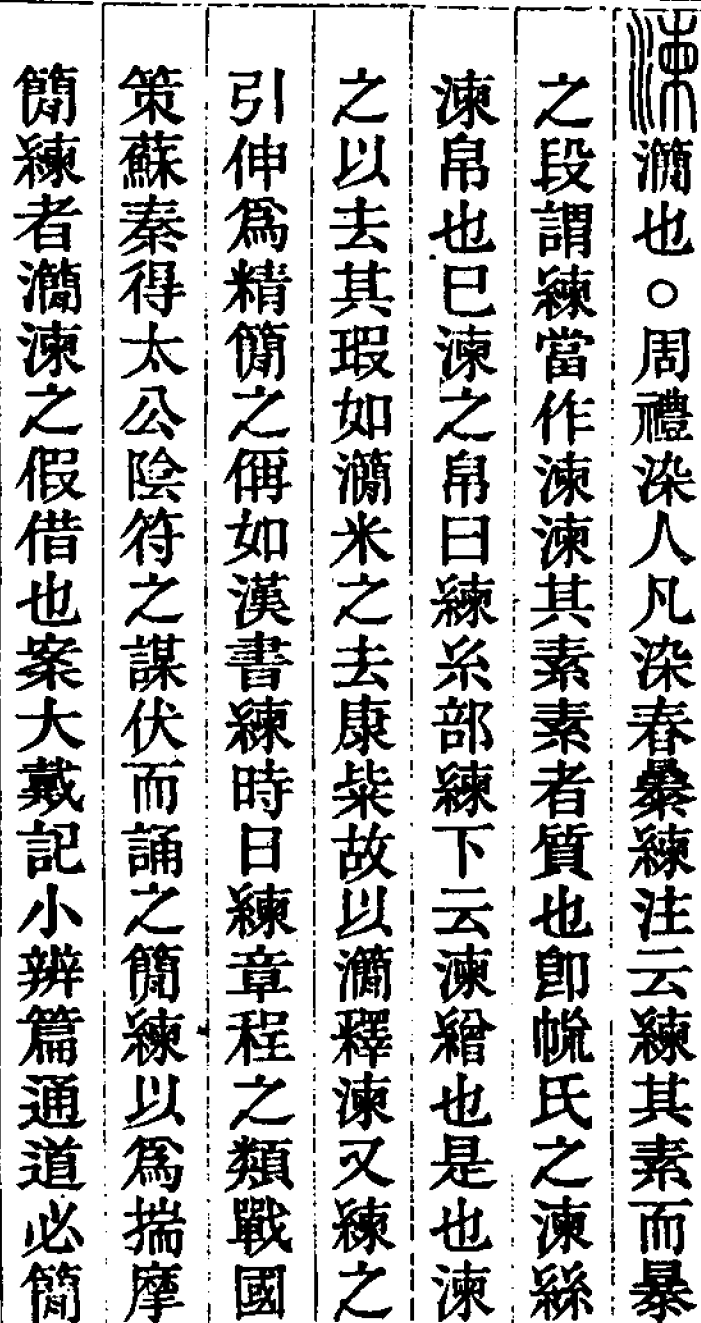 湅㶕也○周禮染人凡染春㬥練注云練其素而暴
之段謂練當作湅湅其素素者質也卽㡃氏之湅絲
湅帛也巳湅之帛曰練糸部練下云湅繒也是也湅
之以去其瑕如㶕米之去康粊故以㶕釋湅又練之
引伸爲精簡之偁如漢書練時日練章程之類戰國
策蘇秦得太公陰符之謀伏而誦之簡練以爲揣摩
簡練者㶕湅之假借也案大戴記小辨篇通道必簡